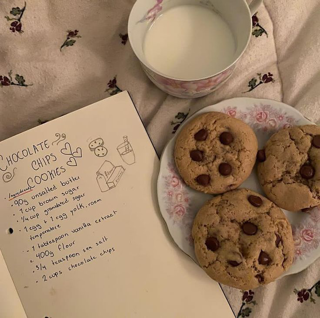 CHOCOLATE
CHIPS
COOKIES
ingredients
• 90g unsalted butter
• 1 cup brown sugar
• 1/4 cup granulated sugar
• 1 egg & 1 egg yolk, room
temperature
• 1 tablespoon vanilla extract
• 400g flour
• 3/4 teaspoon sea salt
• 2 cups chocolate chips